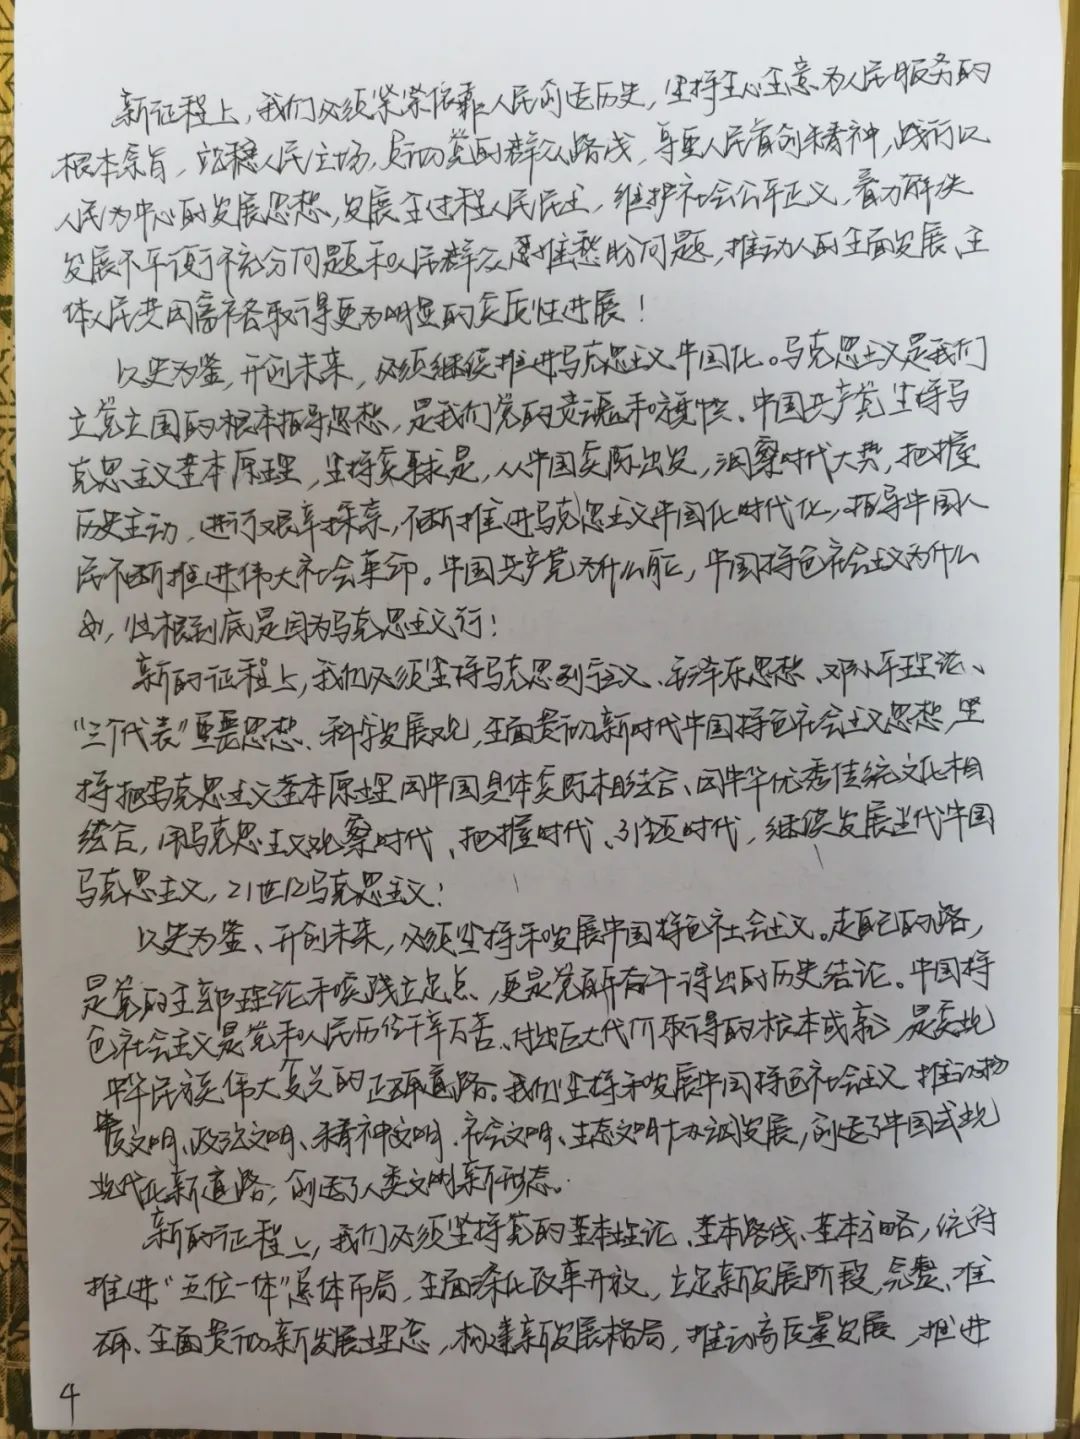 新征程上，我们必须紧紧依靠人民创造历史，坚持全心全意为人民服务的
根本宗旨，站稳人民立场，贯彻党的群众路线，尊重人民首创精神，践行以
人民为中心的发展思想，发展全过程人民民主，维护社会公平正义，着力解决
发展不平衡不充分问题和人民群众急难愁盼问题，推动人的全面发展、全
体人民共同富裕取得更为明显的实质性进展！
以史为鉴，开创未来，必须继续推进马克思主义中国化。马克思主义是我们
立党立国的根本指导思想，是我们党的灵魂和旗帜。中国共产党坚持马
克思主义基本原理，坚持实事求是，从中国实际出发，洞察时代大势，把握
历史主动，进行艰辛探索，不断推进马克思主义中国化时代化，指导中国人
民不断推进伟大社会革命。中国共产党为什么能，中国特色社会主义为什么
好，归根到底是因为马克思主义行！
新的征程上，我们必须坚持马克思列宁主义、毛泽东思想、邓小平理论、
“三个代表”重要思想、科学发展观，全面贯彻新时代中国特色社会主义思想，坚
持把马克思主义基本原理同中国具体实际相结合、同中华优秀传统文化相
结合，用马克思主义观察时代、把握时代、引领时代，继续发展当代中国
马克思主义，21世纪马克思主义！
以史为鉴、开创未来，必须坚持和发展中国特色社会主义。走自己的路，
是党的全部理论和实践立足点，更是党百年奋斗得出的历史结论。中国特
色社会主义是党和人民历经千辛万苦、付出巨大代价取得的根本成就，是实现
中华民族伟大复兴的正确道路。我们坚持和发展中国特色社会主义 推动物
质文明、政治文明、精神文明、社会文明、生态文明协调发展，创造了中国式现
代化新道路，创造了人类文明新形态。
新的征程上，我们必须坚持党的基本理论、基本路线、基本方略，统筹
推进“五位一体”总体布局，全面深化改革开放，立足新发展阶段，完整、准
确、全面贯彻新发展理念，构建新发展格局，推动高质量发展，推进
4